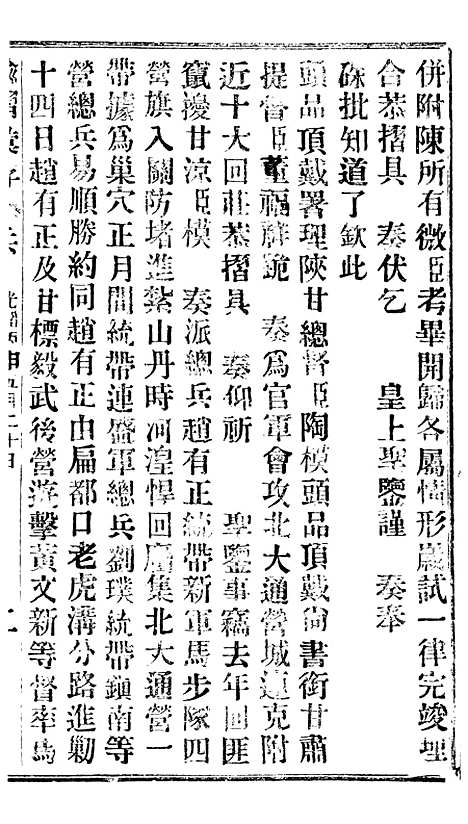 併附陳所有微臣考畢開歸各屬情形歲試一律完竣理
合恭摺具　奏伏乞　皇上聖鑒謹　奏奉
硃批知道了欽此
頭品頂戴署理陝甘總督臣陶模頭品頂戴尚書銜甘肅
提督臣董福祥跪　奏爲官軍會攻北大通營城連克附
近十大回莊恭摺具　奏仰祈　聖鑒事竊去年回匪
竄邊甘涼臣模　奏派總兵趙有正統帶新軍馬步隊四
營旗入關防堵進紮山丹時河湟悍回麕集北大通營一
帶據爲巢穴正月間統帶連盛軍總兵劉璞統帶鎮南等
營總兵易順勝約同趙有正由扁都口老虎溝分路進勦
十四日趙有正及甘標毅武後營遊擊黃文新等督率馬
諭摺彙存　光緒丙申五月二十日　二